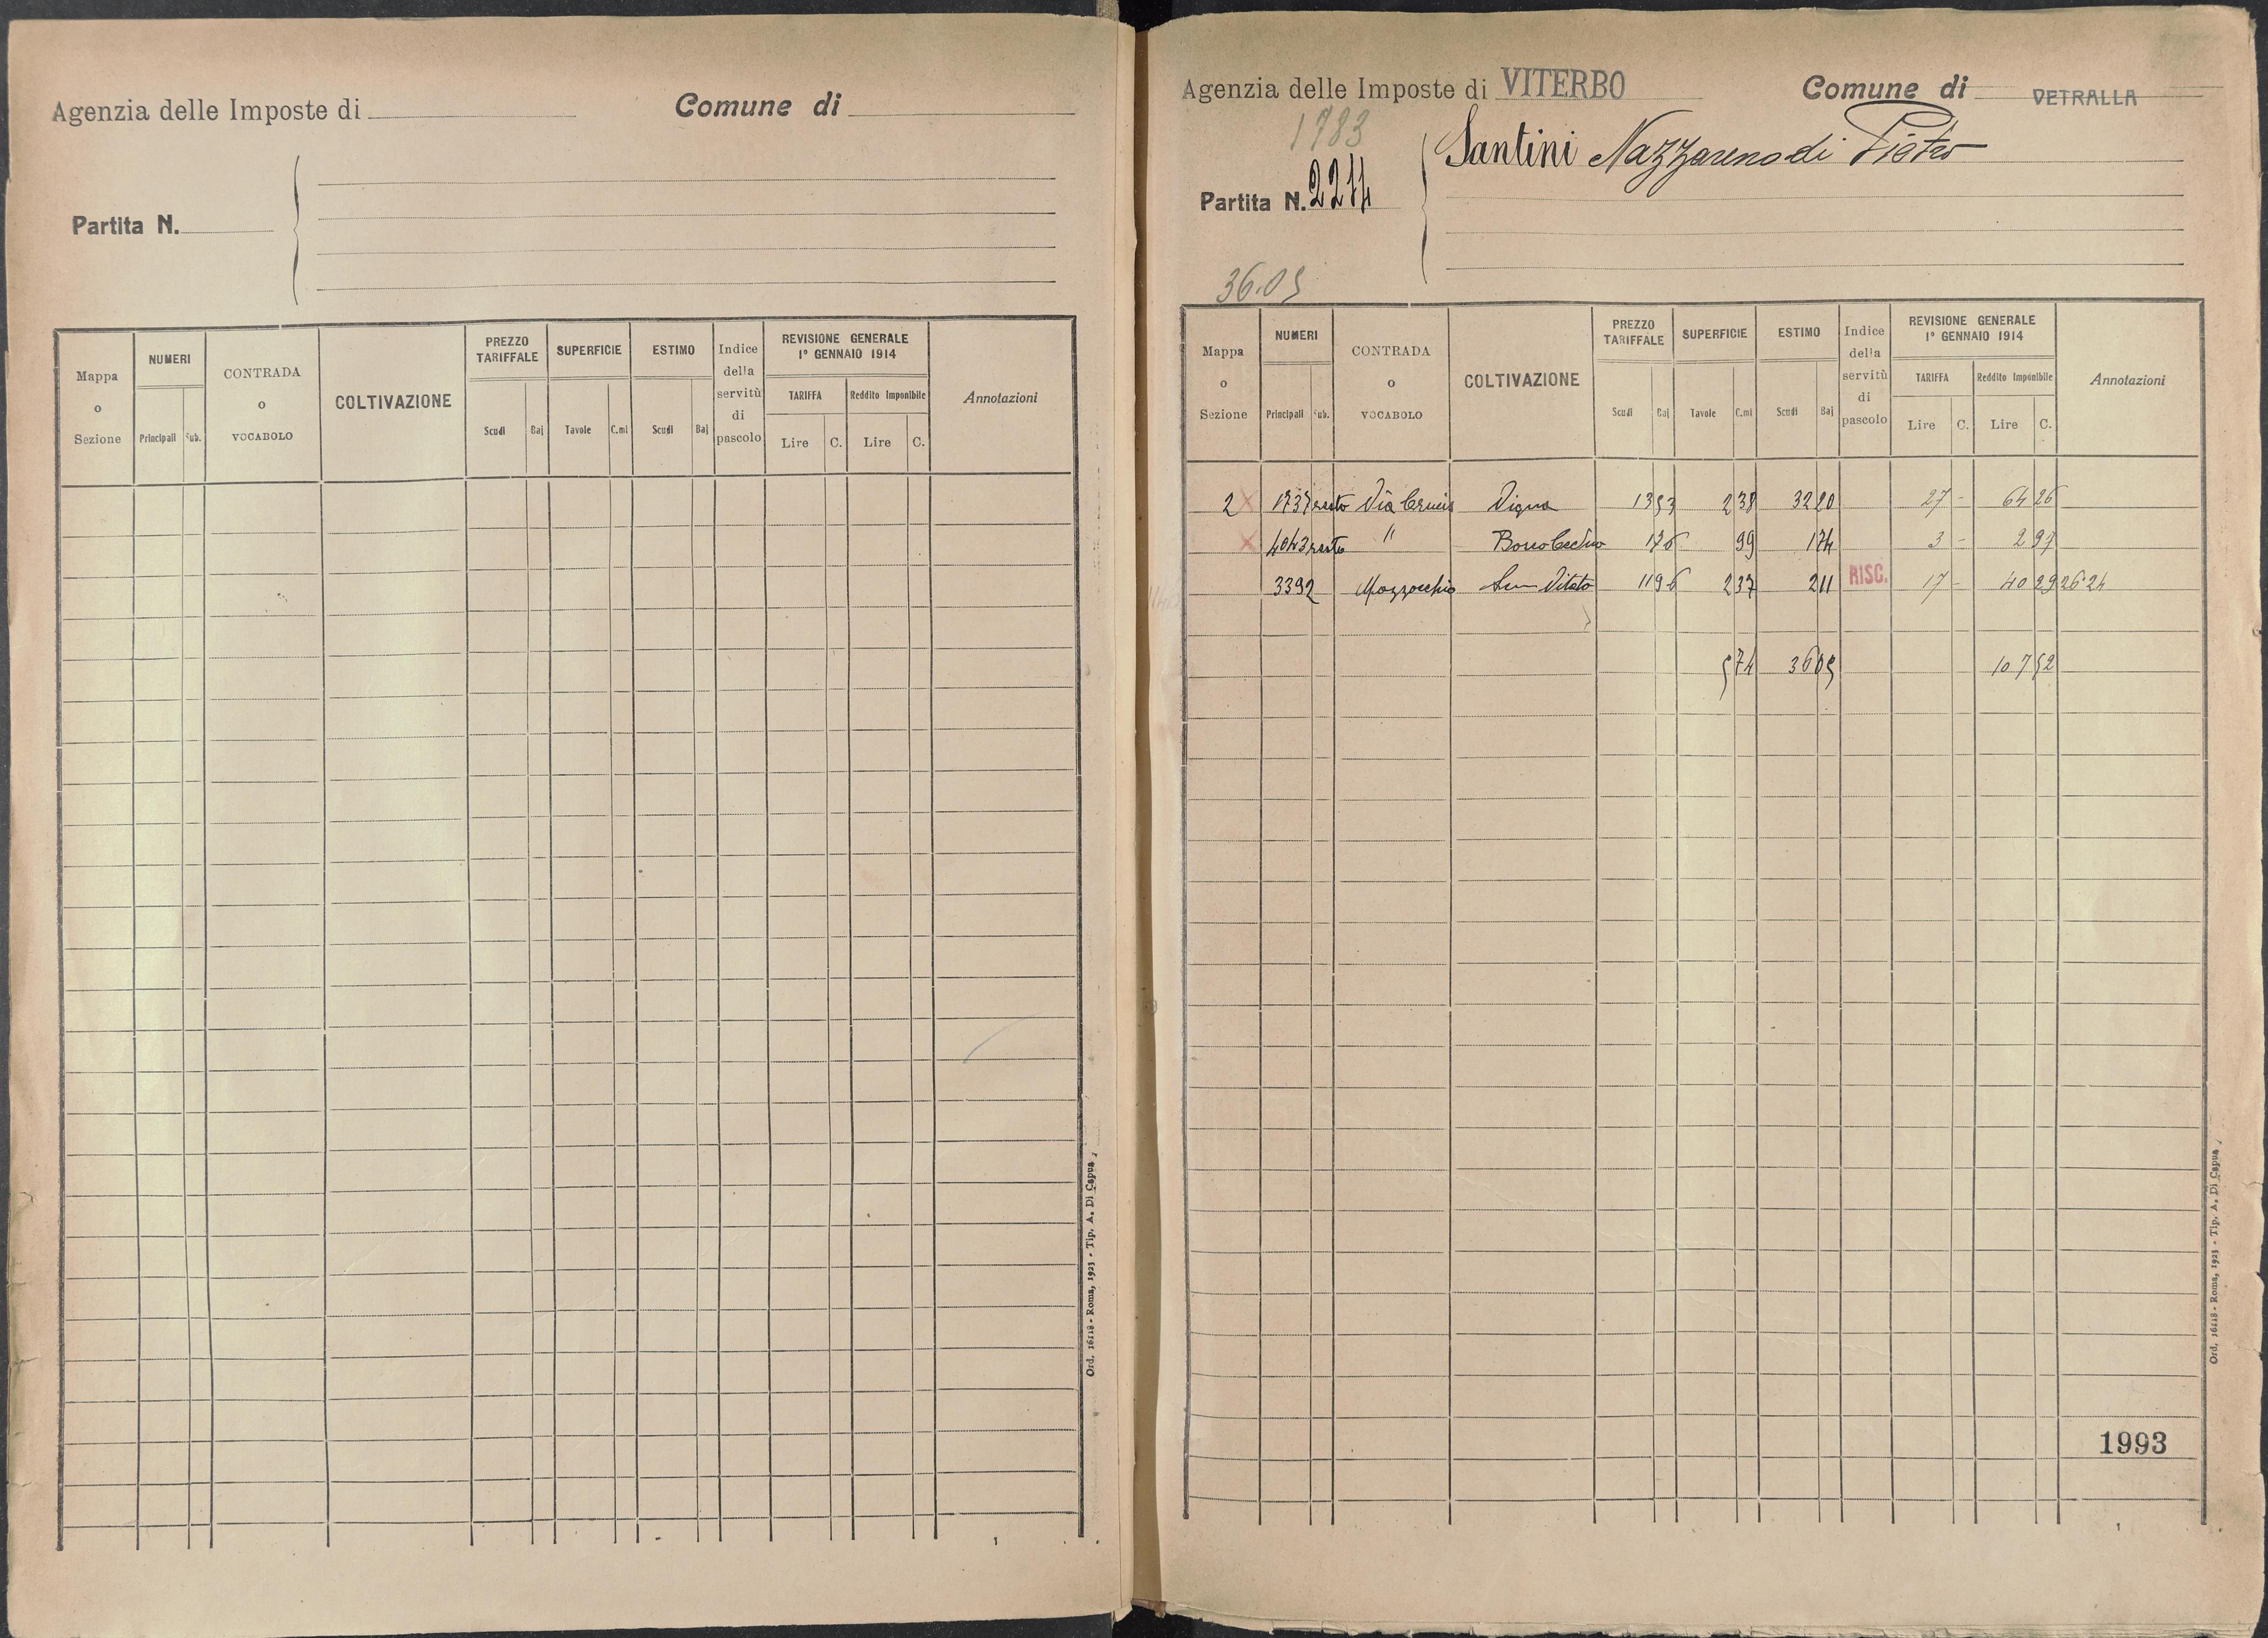 Agenzia delle Imposte di
Comune di
Partita N.
Mappa o Sezione
NUMERI
Principali
Sub.
CONTRADA o VOCABOLO
COLTIVAZIONE
PREZZO TARIFFALE
Scudi
Baj
SUPERFICIE
Tavole
C.mi
ESTIMO
Scudi
Baj
Indice della servitù di pascolo
REVISIONE GENERALE
1° GENNAIO 1914
TARIFFA
Lire
C.
Reddito Imponibile
Lire
C.
Annotazioni
Ord. 16118 - Roma, 1923 - Tip. A. Di Capua
Agenzia delle Imposte di VITERBO
Comune di VETRALLA
1783
Partita N. 2214
Santini Nazzareno di Pietro
36.05
Mappa o Sezione
NUMERI
Principali
Sub.
CONTRADA o VOCABOLO
COLTIVAZIONE
PREZZO TARIFFALE
Scudi
Baj
SUPERFICIE
Tavole
C.mi
ESTIMO
Scudi
Baj
Indice della servitù di pascolo
REVISIONE GENERALE
1° GENNAIO 1914
TARIFFA
Lire
C.
Reddito Imponibile
Lire
C.
Annotazioni
2 X 1737 resto Via Crucis Vigna 13 53 2 38 32 20 27 - 64 26
X 4043 resto " 1 76 99 1 74 3 - 2 97
3392 Mazzocchio Sem Vitato 11 96 2 37 2 11 RISC. 17 - 40 29 26 24
5 74 36 05 107 52
1993
Ord. 16118 - Roma, 1923 - Tip. A. Di Capua